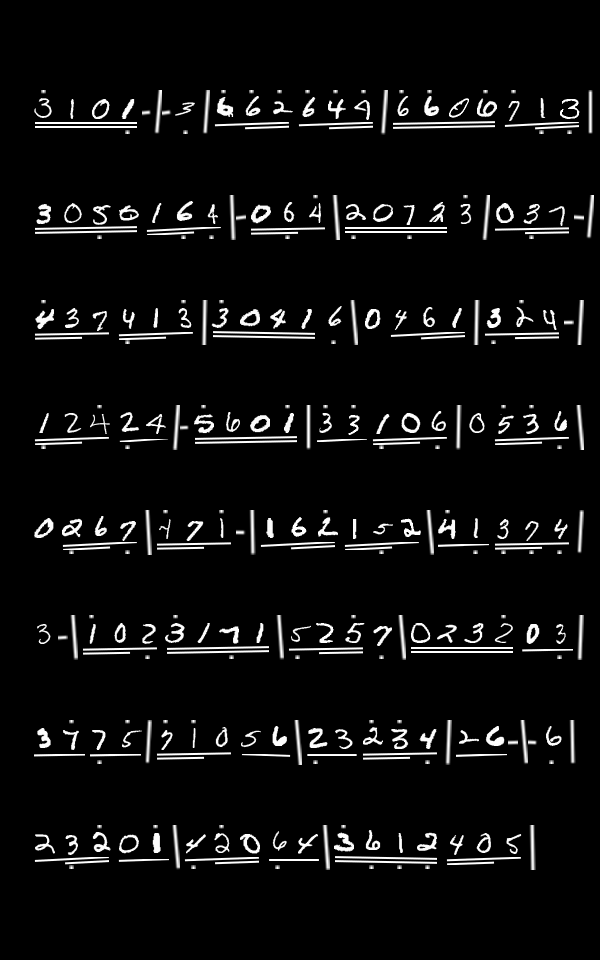 3 1 0 1 - | - 3 | 6 6 2 6 4 9 | 6 6 0 6 7 1 3 |
3 0 5 0 1 6 4 | - 0 6 4 | 2 0 7 2 3 | 0 3 7 - |
4 3 7 4 1 3 | 3 0 4 1 6 | 0 4 6 1 | 3 2 4 - |
1 2 4 2 4 | - 5 6 0 1 | 3 3 1 0 6 | 0 5 3 6 |
0 2 6 7 | 4 7 1 - | 1 6 2 1 5 2 | 4 1 3 7 4 |
3 - | 1 0 2 3 1 7 1 | 5 2 5 7 | 0 2 3 2 0 3 |
3 7 7 5 | 7 1 0 5 6 | 2 3 2 3 4 | 2 6 - | - 6 |
2 3 2 0 1 | 4 2 0 6 4 | 3 6 1 2 4 0 5 |